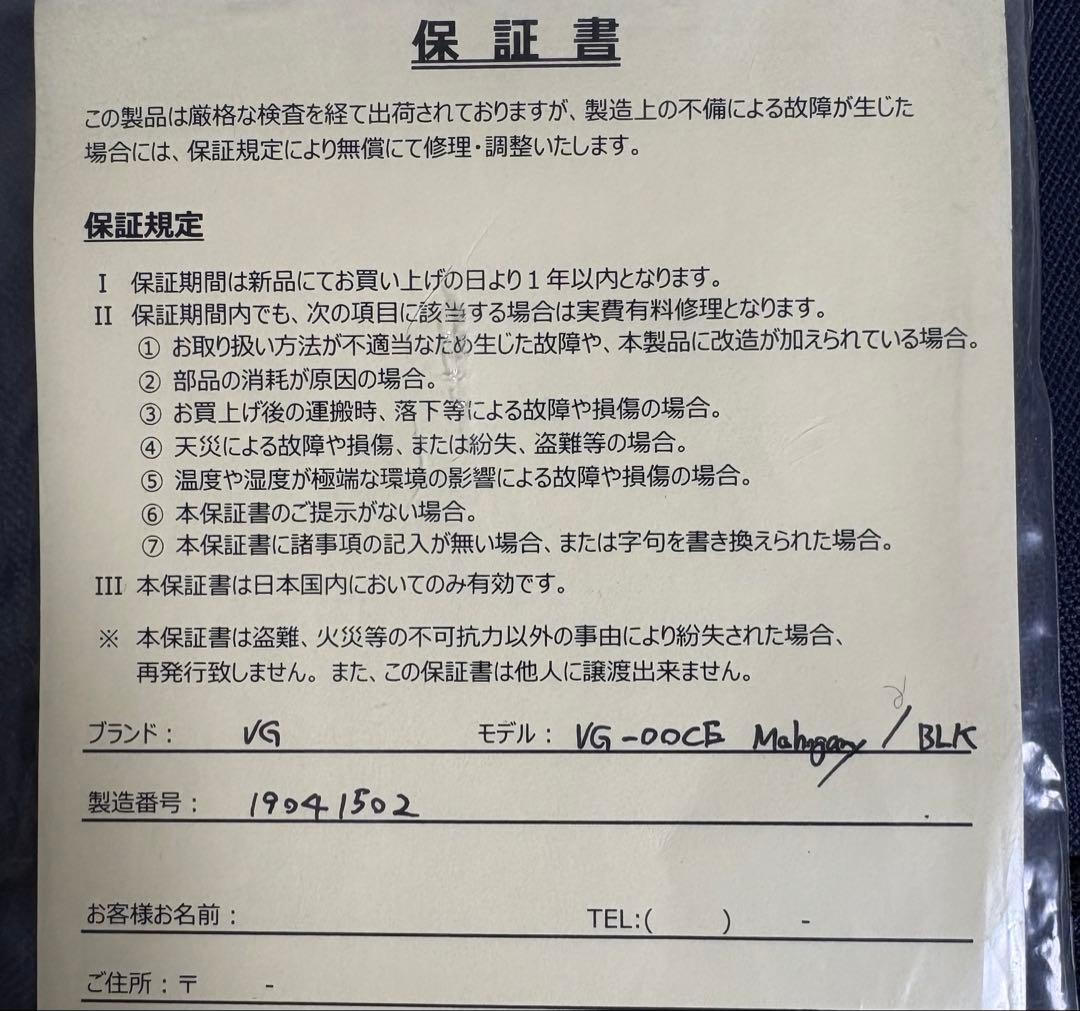 保証書
この製品は厳格な検査を経て出荷されておりますが、製造上の不備による故障が生じた
場合には、保証規定により無償にて修理・調整いたします。
保証規定
I 保証期間は新品にてお買い上げの日より1年以内となります。
II 保証期間内でも、次の項目に該当する場合は実費有料修理となります。
① お取り扱い方法が不適当なため生じた故障や、本製品に改造が加えられている場合。
② 部品の消耗が原因の場合。
③ お買上げ後の運搬時、落下等による故障や損傷の場合。
④ 天災による故障や損傷、または紛失、盗難等の場合。
⑤ 温度や湿度が極端な環境の影響による故障や損傷の場合。
⑥ 本保証書のご提示がない場合。
⑦ 本保証書に諸事項の記入が無い場合、または字句を書き換えられた場合。
III 本保証書は日本国内においてのみ有効です。
※ 本保証書は盗難、火災等の不可抗力以外の事由により紛失された場合、
再発行致しません。また、この保証書は他人に譲渡出来ません。
ブランド： VG モデル： VG-00CE Mahogany / BLK
製造番号： 19041502
お客様お名前： TEL:( ) -
ご住所：〒 -